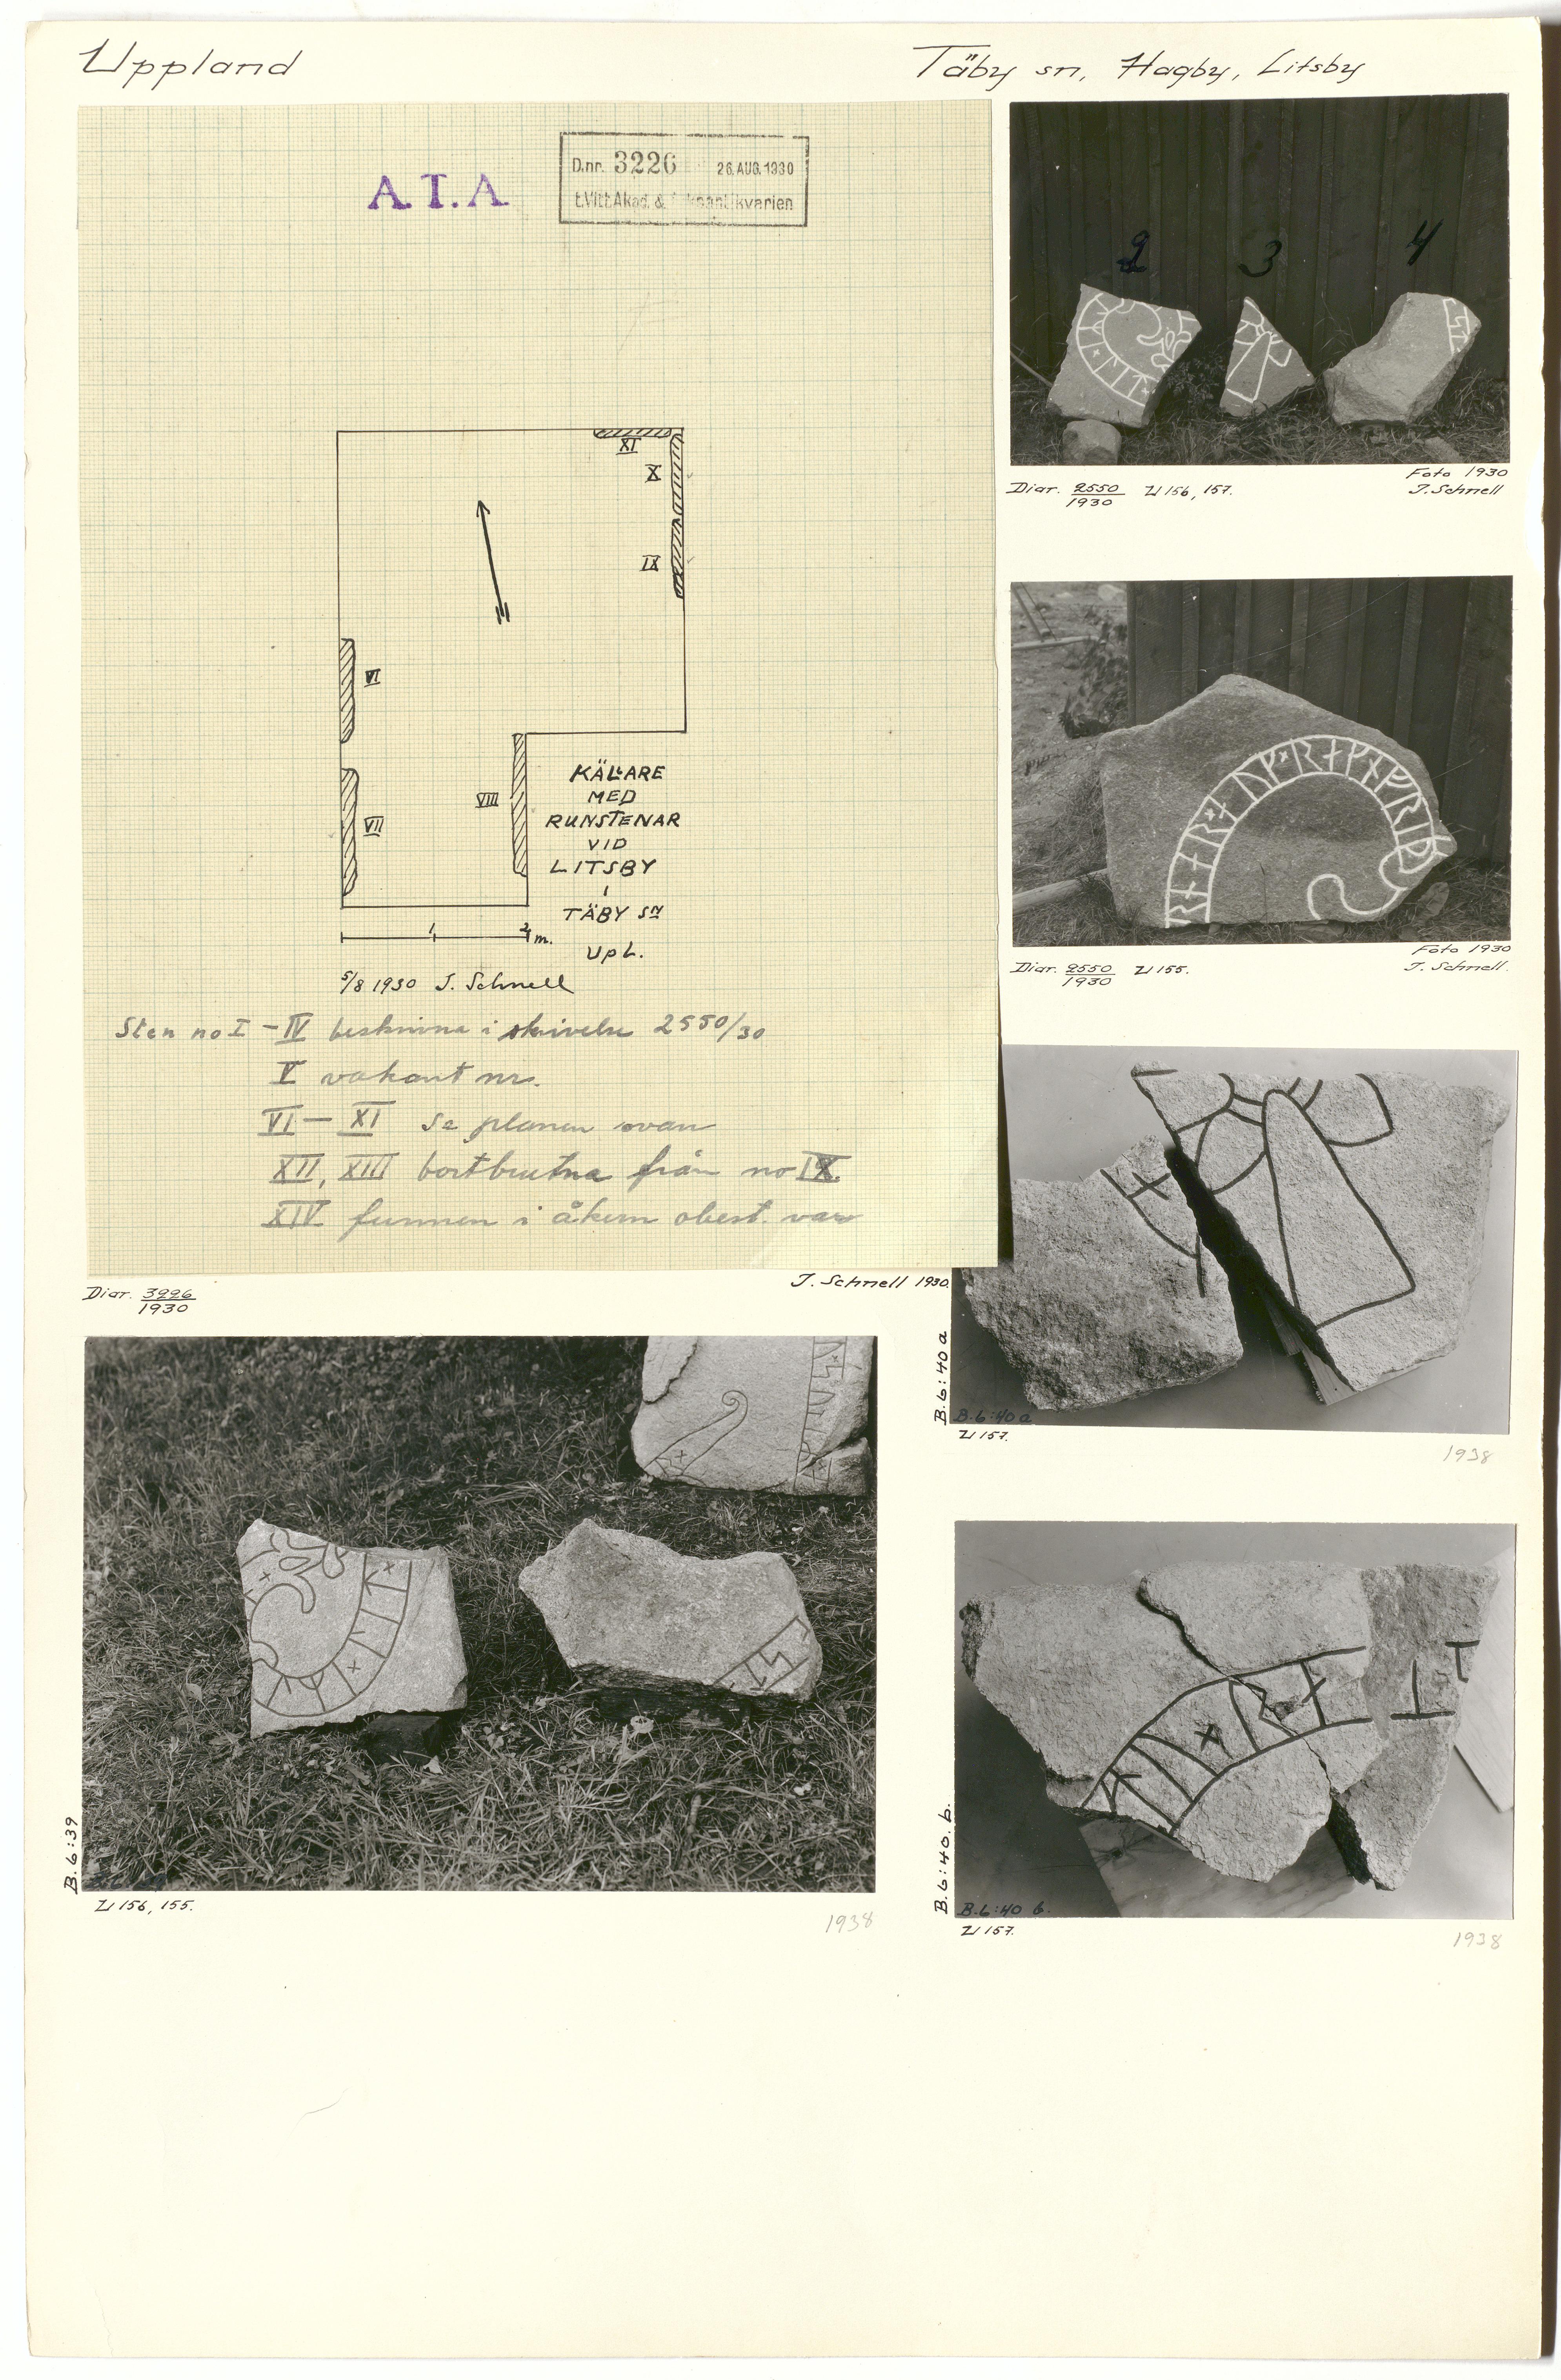 Uppland
Täby sn, Hagby, Litsby
A.T.A.
D.nr. 3226 26.AUG.1930
t.Vitt.Akad. &
XI
X
IX
VI
VII
VIII
KÄLLARE
MED
RUNSTENAR
VID
LITSBY
I
TÄBY SN
UPL.
1 2 m.
5/8 1930 I. Schnell
Sten no I – IV beskrivna i skrivelse 2550/30
V vakant nr.
VI – XI se planen ovan
XII, XIII bortbrutna från no IX.
XIV funnen i åkern obest. var
Diar. 3226/1930
I. Schnell 1930.
2 3 4
Diar. 2550/1930 U 156, 157.
Foto 1930
I. Schnell
Diar. 2550/1930 U 155.
Foto 1930
I. Schnell.
B.6:40 a
B.6:40 a
U 157.
1938
B.6:39
U 156, 155.
1938
B.6:40. b.
B.6:40 b.
U 157.
1938